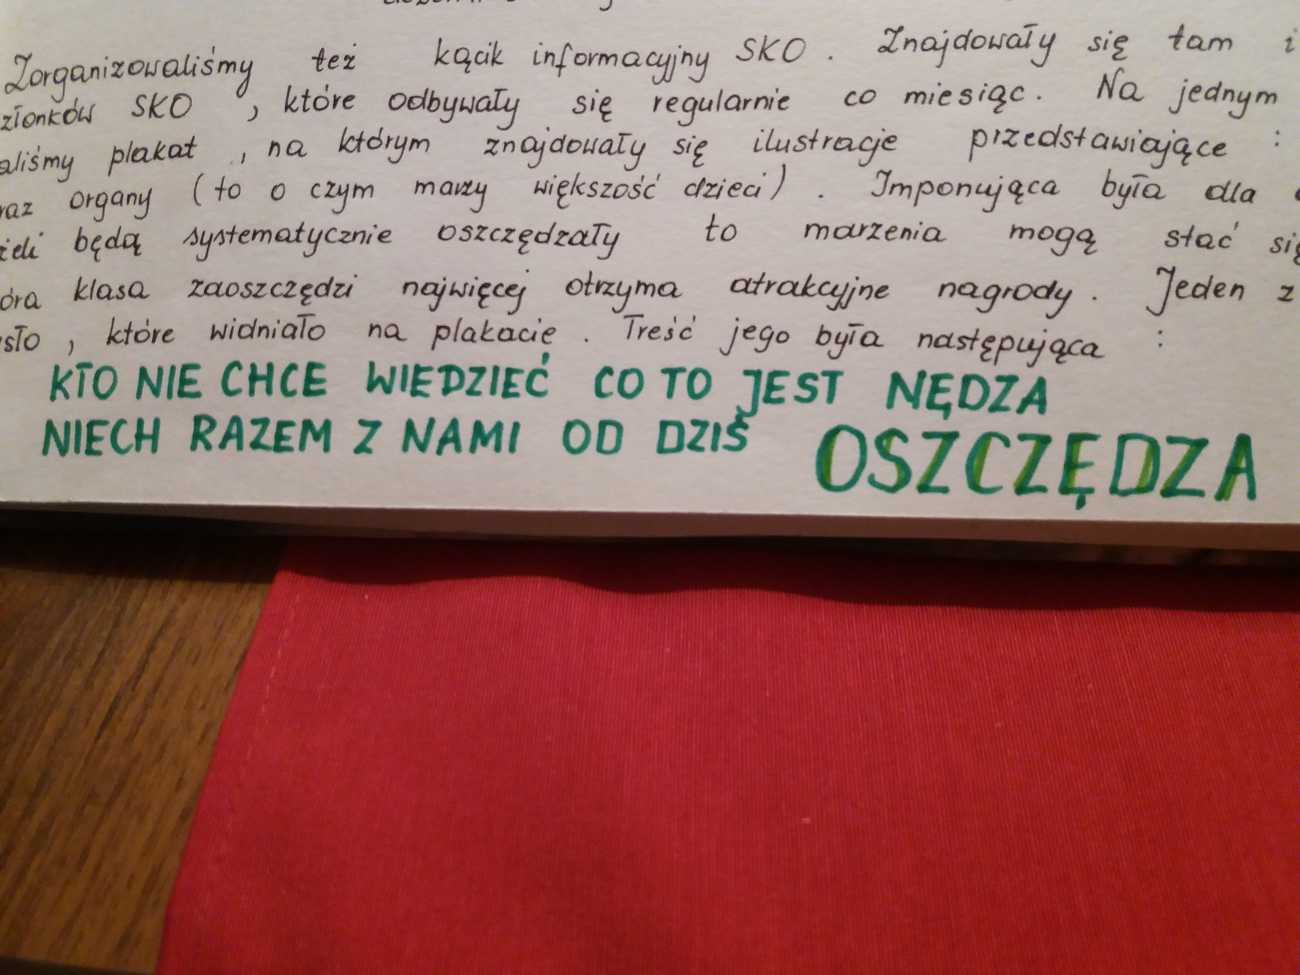 Zorganizowaliśmy też kącik informacyjny SKO. Znajdowały się tam i
członków SKO, które odbywały się regularnie co miesiąc. Na jednym
aliśmy plakat, na którym znajdowały się ilustracje przedstawiające:
raz organy (to o czym marzy większość dzieci). Imponująca była dla
żeli będą systematycznie oszczędzały to marzenia mogą stać się
óra klasa zaoszczędzi najwięcej otrzyma atrakcyjne nagrody. Jeden z
sło, które widniało na plakacie. Treść jego była następująca:
KTO NIE CHCE WIEDZIEĆ CO TO JEST NĘDZA
NIECH RAZEM Z NAMI OD DZIŚ OSZCZĘDZA